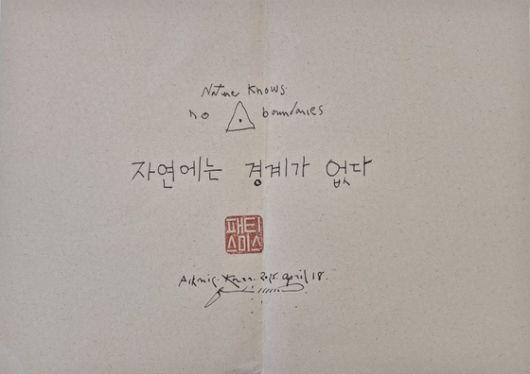 Nature Knows
no boundaries
자연에는 경계가 없다
패티
스미스
April 18.